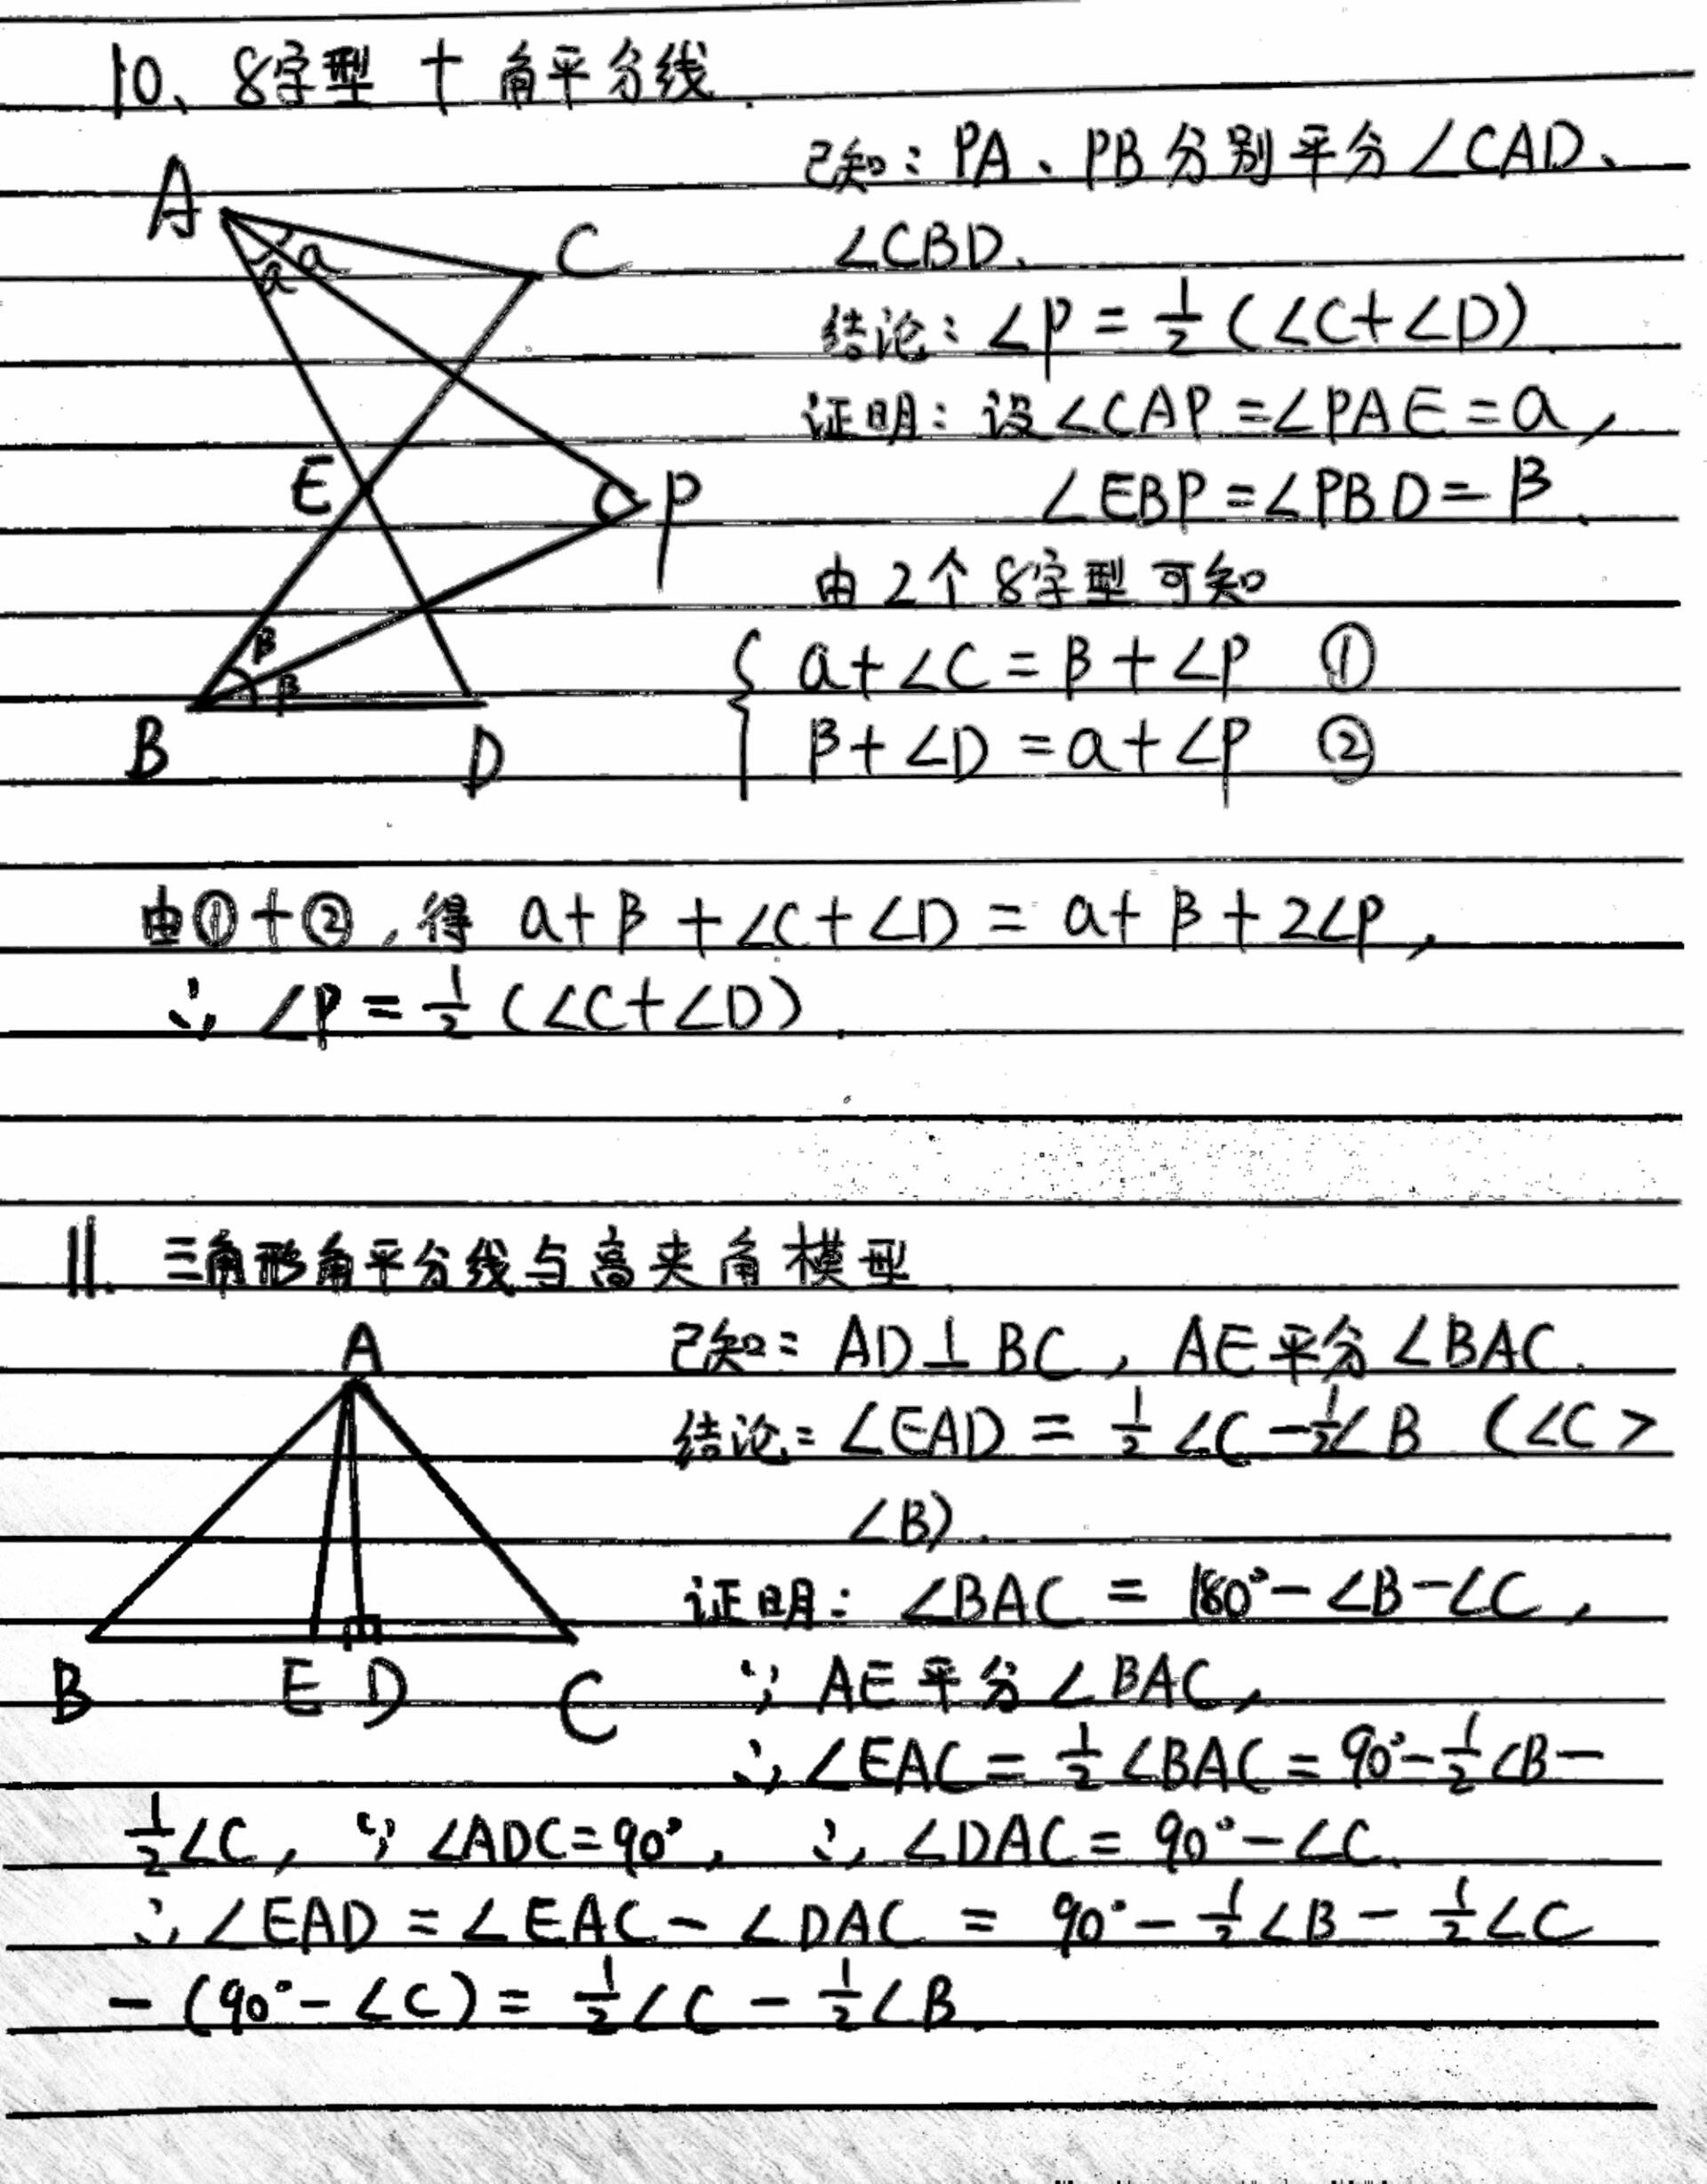 10、8字型 + 角平分线.
已知：PA、PB分别平分∠CAD、
∠CBD.
结论：∠P = 1/2 (∠C+∠D).
证明：设∠CAP=∠PAE=a，
∠EBP=∠PBD=β.
由2个8字型可知
{ a+∠C=β+∠P ①
β+∠D=a+∠P ②
A
C
a
a
E
P
β
β
B
D
由①+②，得 a+β+∠C+∠D=a+β+2∠P，
∴ ∠P = 1/2 (∠C+∠D).
11. 三角形角平分线与高夹角模型.
已知：AD⊥BC，AE平分∠BAC.
结论：∠EAD = 1/2∠C-1/2∠B (∠C>
∠B).
证明：∠BAC = 180°-∠B-∠C，
∵ AE平分∠BAC，
∴ ∠EAC = 1/2∠BAC = 90°-1/2∠B-
A
B
E
D
C
1/2∠C，∵ ∠ADC=90°，∴ ∠DAC = 90°-∠C.
∴ ∠EAD = ∠EAC - ∠DAC = 90°-1/2∠B-1/2∠C
-(90°-∠C) = 1/2∠C-1/2∠B.